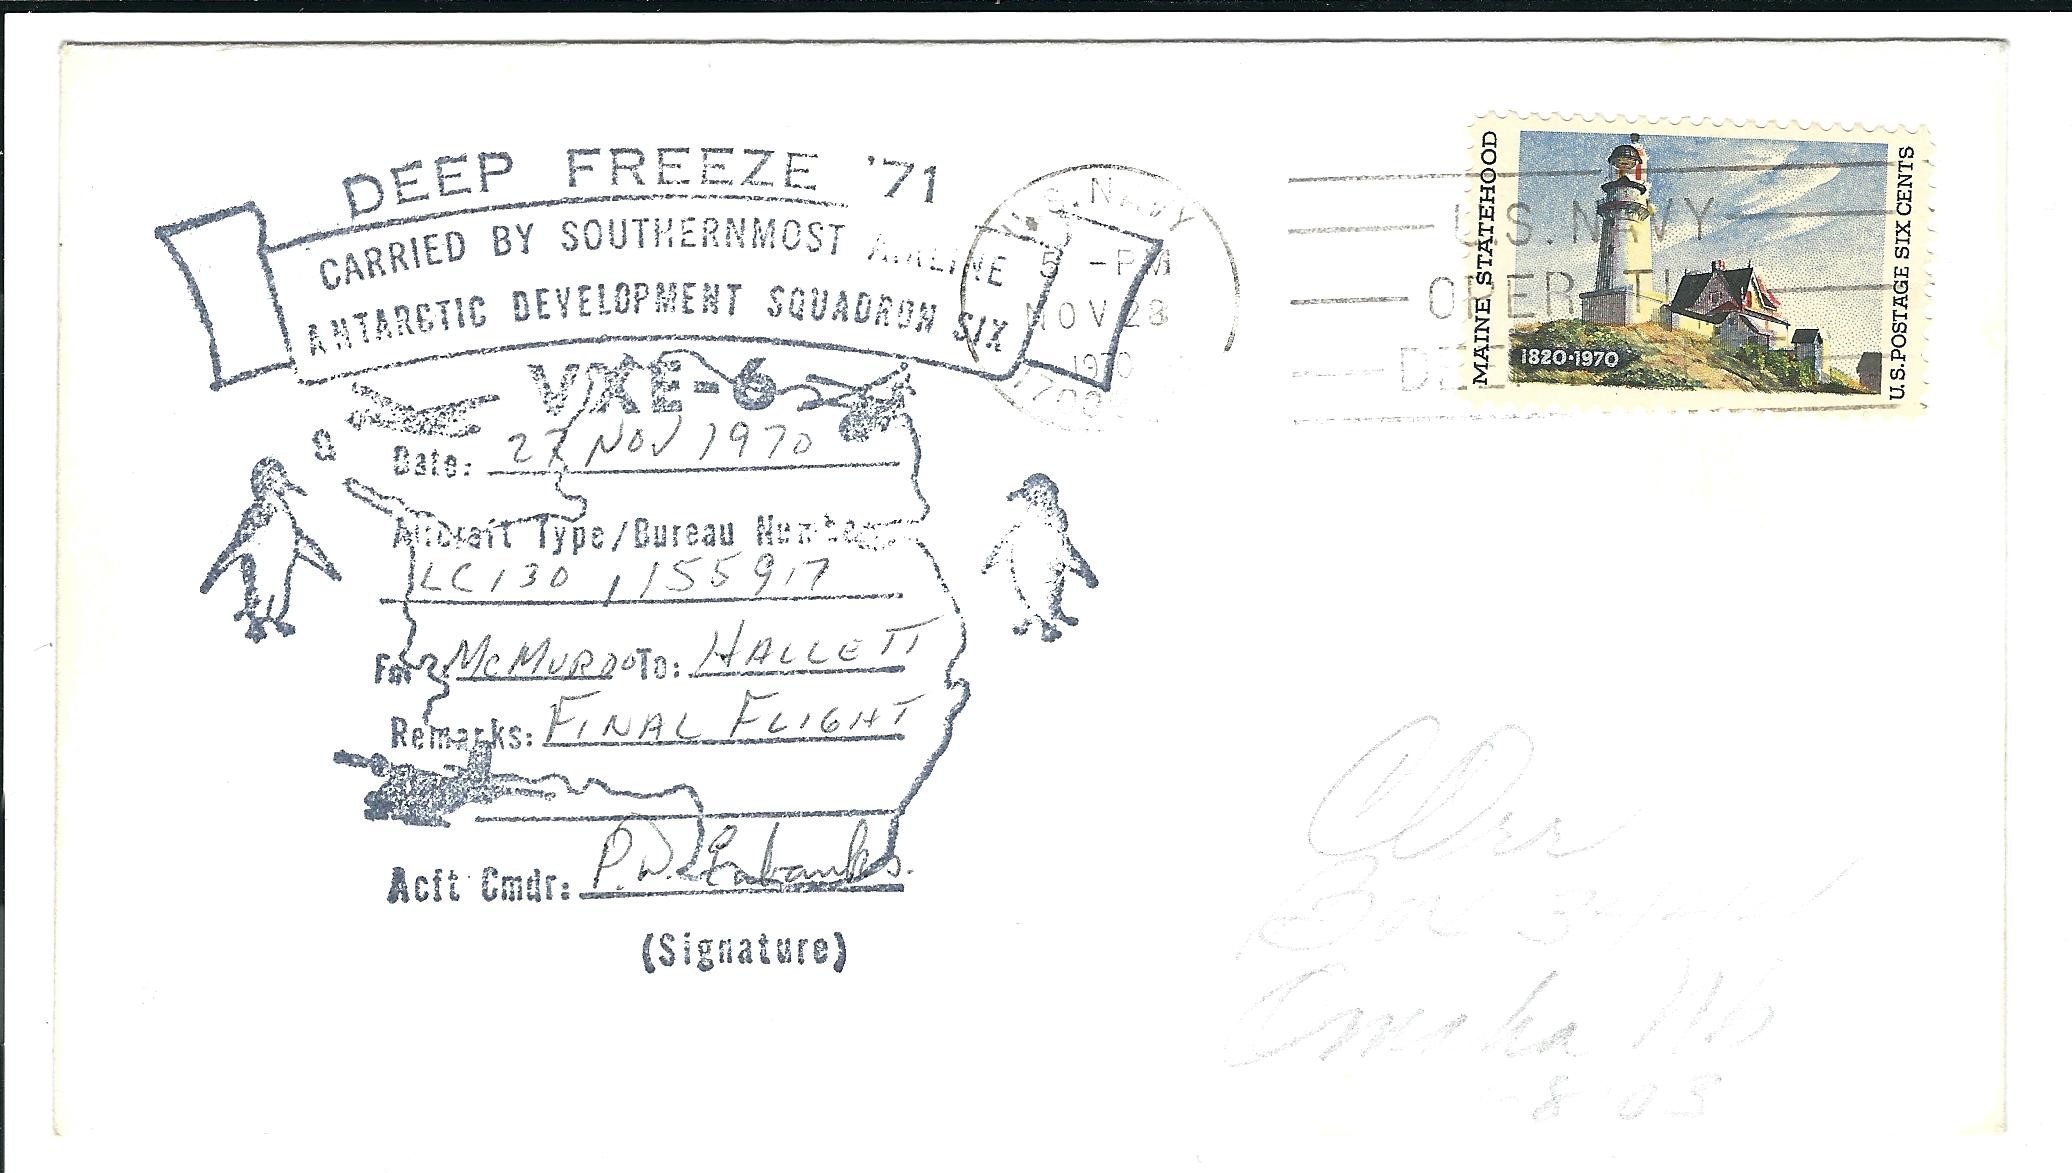 DEEP FREEZE '71
CARRIED BY SOUTHERNMOST AIRLINE
ANTARCTIC DEVELOPMENT SQUADRON SIX
VXE-6
Date: 27 NOV 1970
Aircraft Type/Bureau Number
LC130, 155917
Fm: McMURDO To: HALLETT
Remarks: FINAL FLIGHT
Acft Cmdr: P.W. Eubanks.
(Signature)
U.S. NAVY
5 -PM
NOV 28
1970
U.S. NAVY
MAINE STATEHOOD
1820·1970
U.S. POSTAGE SIX CENTS
Orr
Box
Omaha Nb